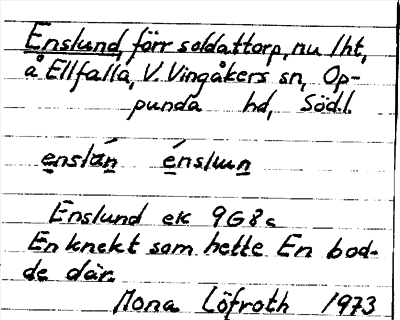 Enslund, förr soldattorp, nu lht,
å Ellfalla, V. Vingåkers sn, Op-
punda hd, Södl.
enslán énslun
Enslund ek 9G8c
En knekt som hette En bod-
de där.
Mona Löfroth 1973